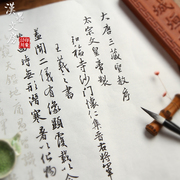 大唐三藏聖教序
太宗文皇帝製
弘福寺沙門懷仁集晉右將軍
王羲之書
蓋聞二儀有像顯覆載以
時無形潛寒暑以化物